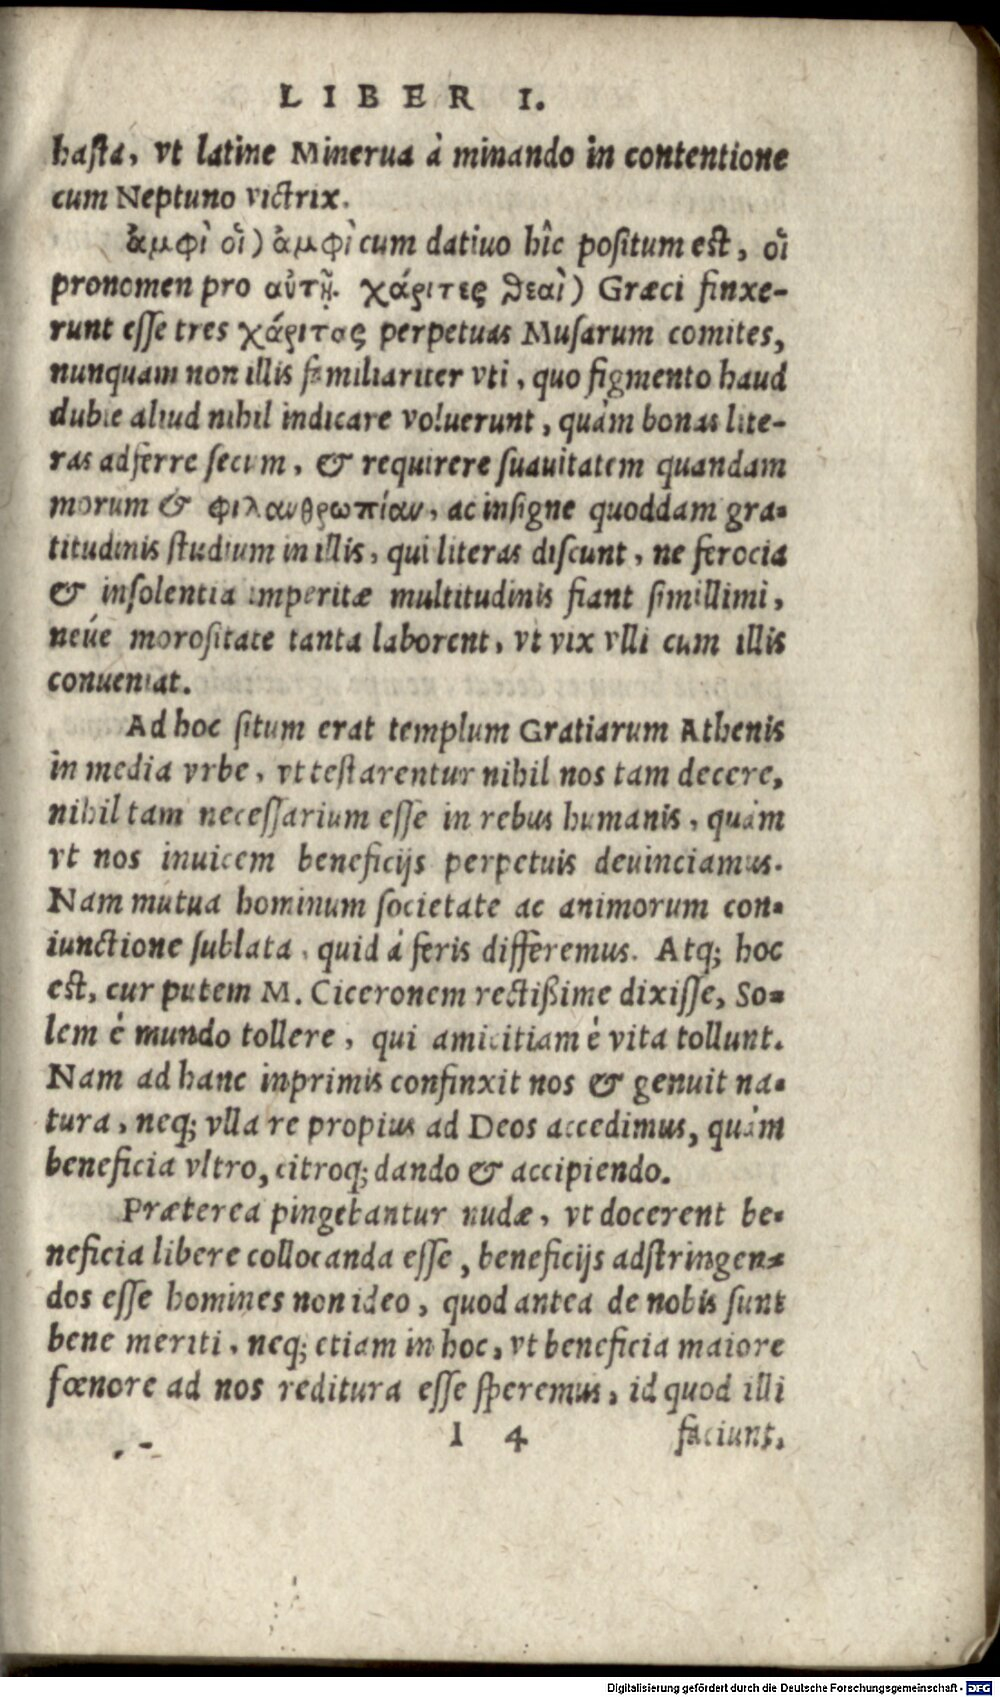 LIBER I.
hasta, vt latine Minerua à minando in contentione
cum Neptuno victrix.
ἀμφὶ οἷ) ἀμφὶ cum datiuo hîc positum est, οἷ
pronomen pro αὐτῇ. χάριτες θεαὶ) Græci finxe-
runt esse tres χάριτας perpetuas Musarum comites,
nunquam non illis familiariter vti, quo figmento haud
dubie aliud nihil indicare voluerunt, quàm bonas lite-
ras adferre secum, & requirere suauitatem quandam
morum & φιλανθρωπίαν, ac insigne quoddam gra-
titudinis studium in illis, qui literas discunt, ne ferocia
& insolentia imperitæ multitudinis fiant simillimi,
neúe morositate tanta laborent, vt vix vlli cum illis
conueniat.
Ad hoc situm erat templum Gratiarum Athenis
in media vrbe, vt testarentur nihil nos tam decere,
nihil tam necessarium esse in rebus humanis, quàm
vt nos inuicem beneficijs perpetuis deuinciamus.
Nam mutua hominum societate ac animorum con-
iunctione sublata, quid á feris differemus. Atq; hoc
est, cur putem M. Ciceronem rectißime dixisse, So-
lem è mundo tollere, qui amicitiam è vita tollunt.
Nam ad hanc inprimis confinxit nos & genuit na-
tura, neq; vlla re propius ad Deos accedimus, quàm
beneficia vltro, citroq; dando & accipiendo.
Præterea pingebantur nudæ, vt docerent be-
neficia libere collocanda esse, beneficijs adstringen-
dos esse homines non ideo, quod antea de nobis sunt
bene meriti, neq; etiam in hoc, vt beneficia maiore
fœnore ad nos reditura esse speremus, id quod illi
I 4 faciunt,
Digitalisierung gefördert durch die Deutsche Forschungsgemeinschaft - DFG